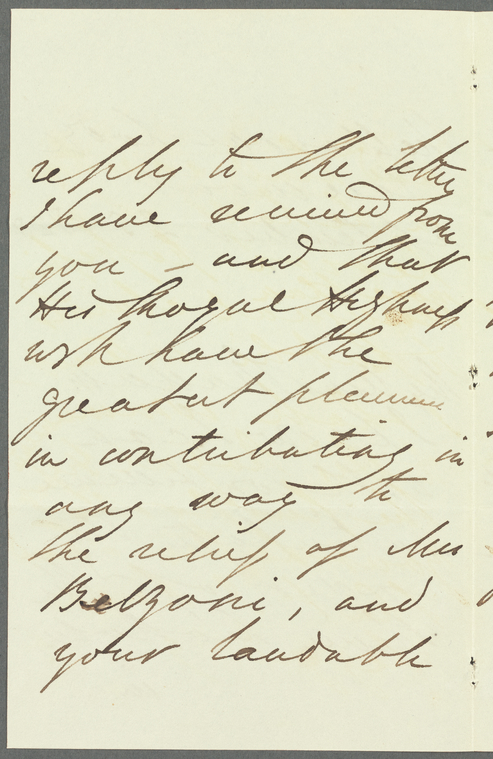 reply to the letter
I have received from
you – and that
His Royal Highness
will have the
greatest pleasure
in contributing in
any way to
the relief of Mrs
Belzoni, and
your laudable